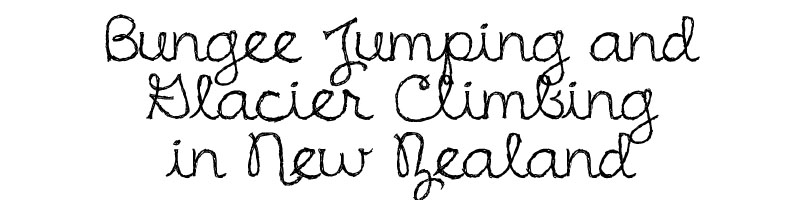 Bungee Jumping and
Glacier Climbing
in New Zealand